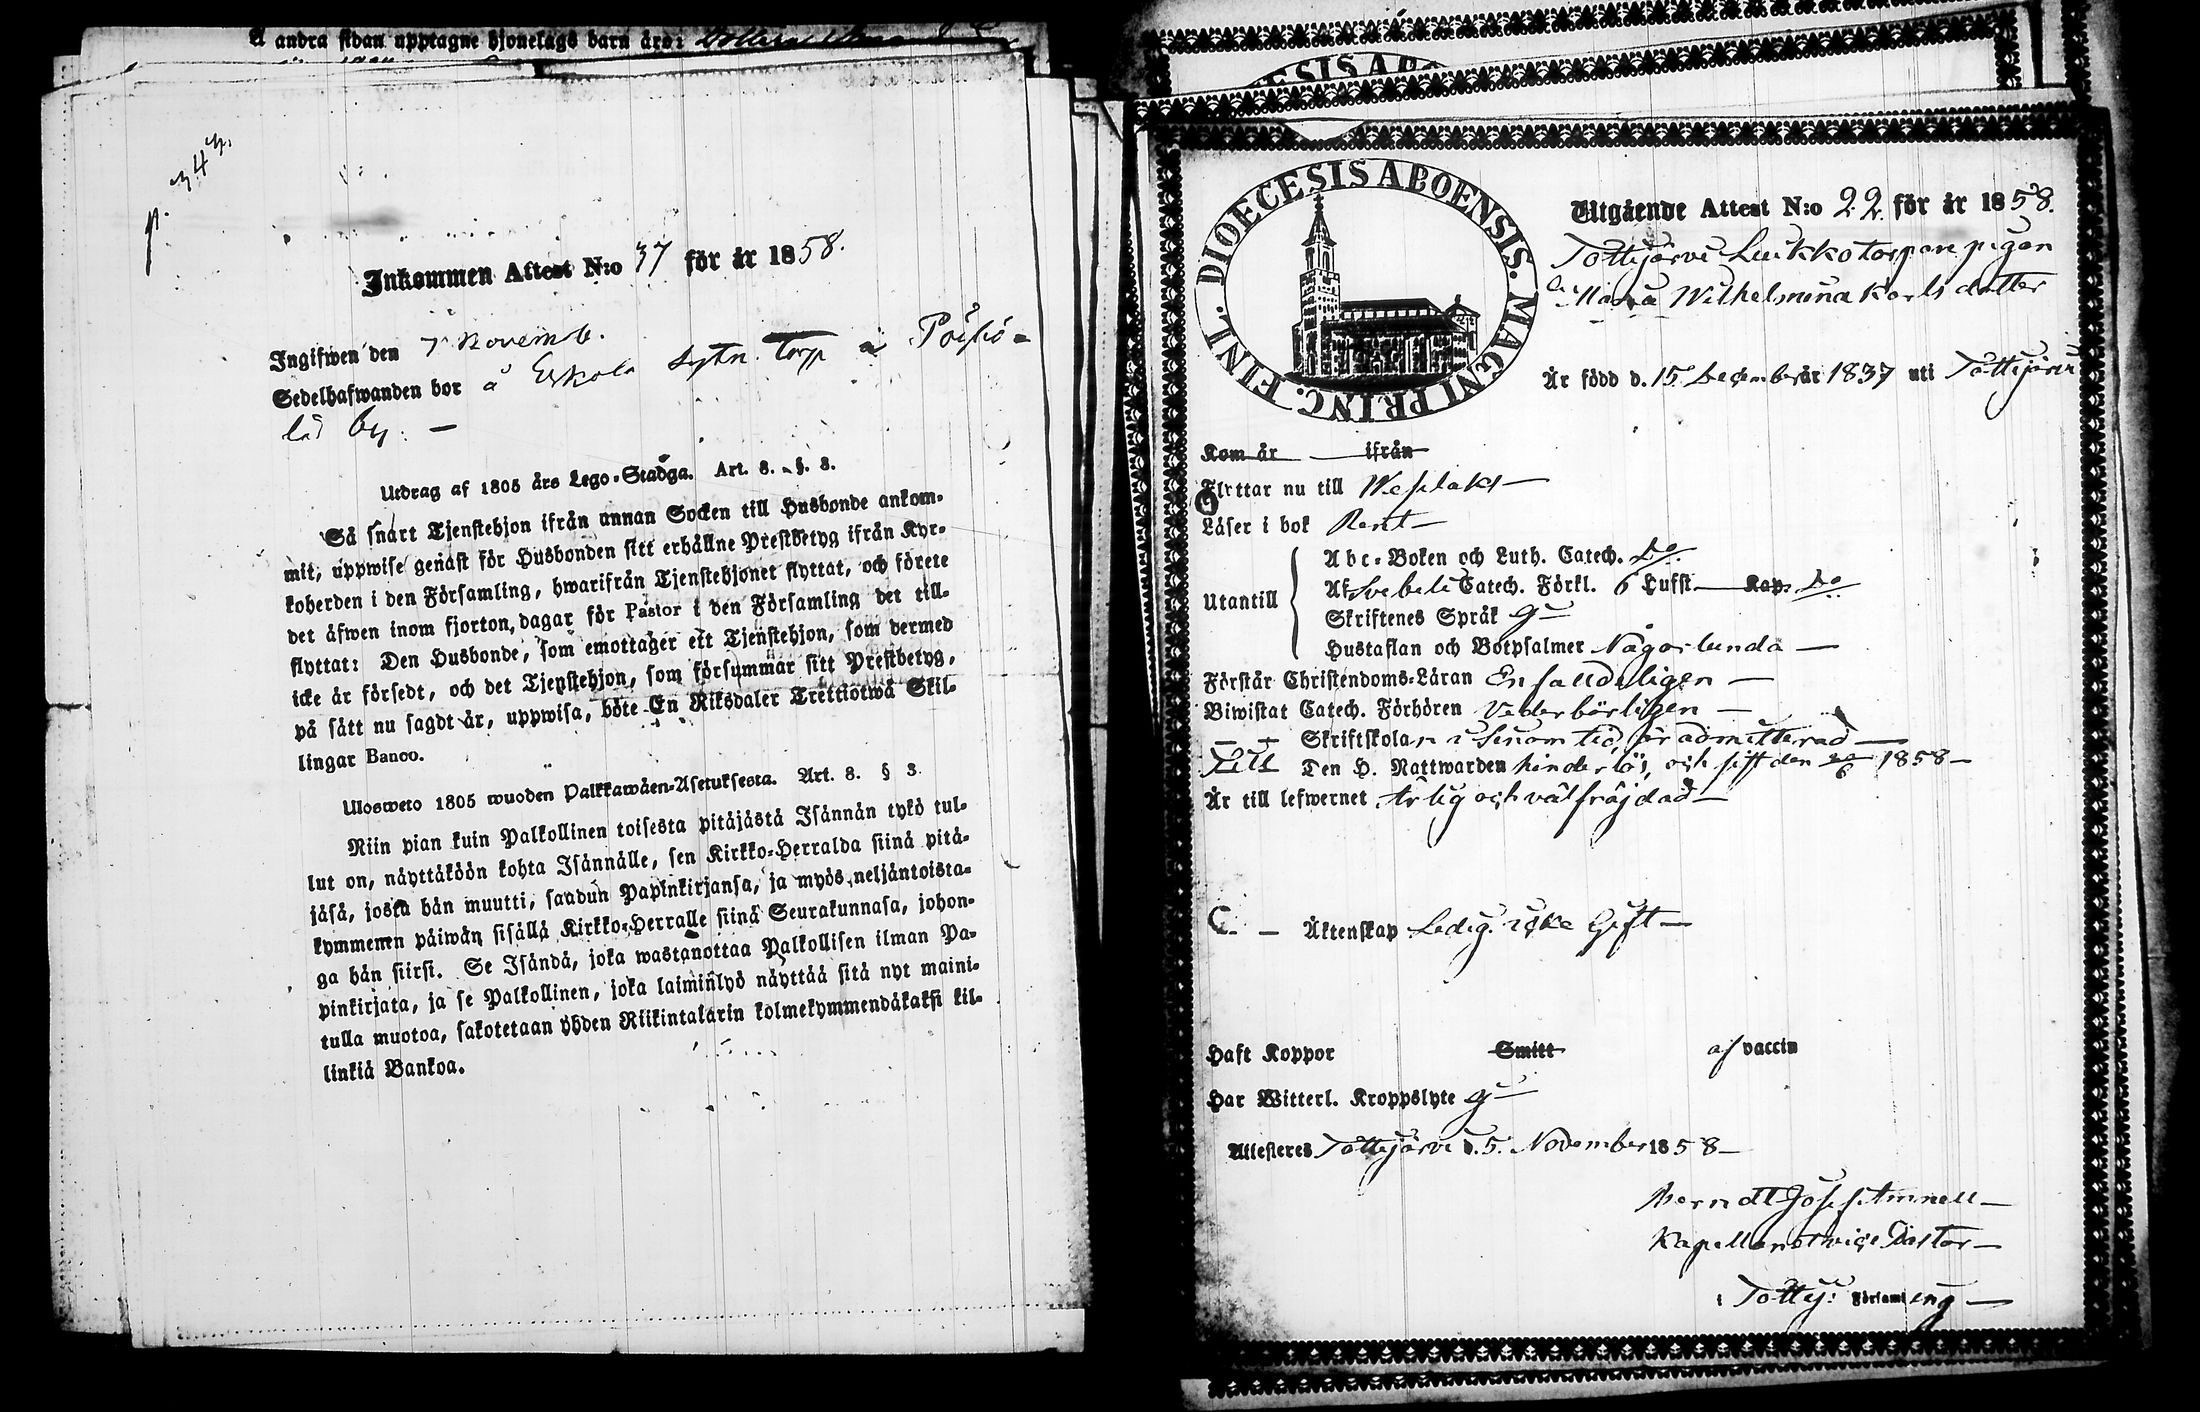 Å andra sidan upptagne hjonelags barn äro:
p. 343.
Inkommen Attest N:o 37 för år 1858.
Ingifwen den 7 Novemb.
Sedelhafwanden bor å Eskola torp à Poihö-
lä by. —
Utdrag af 1805 års Lego-Stadga. Art. 8. §. 3.
Så snart Tjenstehjon ifrån annan Socken till Husbonde ankom-
mit, uppwise genast för Husbonden sitt erhållne Prestbetyg ifrån Kyr-
koherden i den Församling, hwarifrån Tjenstehjonet flyttat, och förete
det äfwen inom fjorton dagar för Pastor i den Församling det till-
flyttat: Den Husbonde, som emottager ett Tjenstehjon, som dermed
icke är försedt, och det Tjenstehjon, som försummar sitt Prestbetyg,
på sätt nu sagdt är, uppwisa, böte En Riksdaler Trettiotwå Skil-
lingar Banco.
Ulosweto 1805 wuoden Palkkawäen-Asetuksesta. Art. 8. § 3.
Niin pian kuin Palkollinen toisesta pitäjästä Isännän tykö tul-
lut on, näyttäköön kohta Isännälle, sen Kirkko-Herralda siinä pitä-
jäsä, josta hän muutti, saadun Papinkirjansa, ja myös neljäntoista-
kymmenen päiwän sisällä Kirkko-Herralle siinä Seurakunnasa, johon-
ga hän siirsi. Se Isändä, joka wastanottaa Palkollisen ilman Pa-
pinkirjata, ja se Palkollinen, joka laiminlyö näyttää sitä nyt maini-
tulla muotoa, sakotetaan yhden Riikintalarin kolmekymmendäkaksi kil-
linkiä Bankoa.
DIOECESIS ABO
DIOECESIS ABOENSIS. MAGNI PRINC. FINL.
Utgående Attest N:o 22. för år 1858.
Tottijärvi Luikko torpare pigan
Maria Wilhelmina Karls dotter
Är född d. 15 December år 1837 uti Tottijärvi
Kom år — ifrån
Flyttar nu till Wesilaks —
Läser i bok Rent —
Utantill
Abc-Boken och Luth. Catech. Do
Af Svebeli Catech. Förkl. 6 Lufst — Kap. Do
Skriftenes Språk
Hustaflan och Botpsalmer Någorlunda —
Förstår Christendoms-Läran Enfaldeligen —
Biwistat Catech. Förhören Vederbörligen —
— — Skriftskolan i sinom tid, är admitterad —
Den H. Nattwarden hinderlös, och sist den 20/6 1858 —
Är till lefwernet Ärlig och välfräjdad —
— Äktenskap Ledig. icke Gift —
Haft Koppor Smitt af vaccin
Har Witterl. Kroppslyte
Attesteres Tottijärvi d. 5. November 1858 —
Berndt Josef Amnell —
Kapellans tvice Pastor —
i Tottij: Församling —